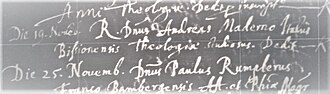 Anni Theologiae Dedit
Die 19. Novemb. R. Dnus Andreas Malerno Italus
Bisionensis Theologiae studiosus. Dedit
Die 25. Novemb. Dnus Paulus Rumalerus
Franco Bambergensis AA. et Phiae Magr